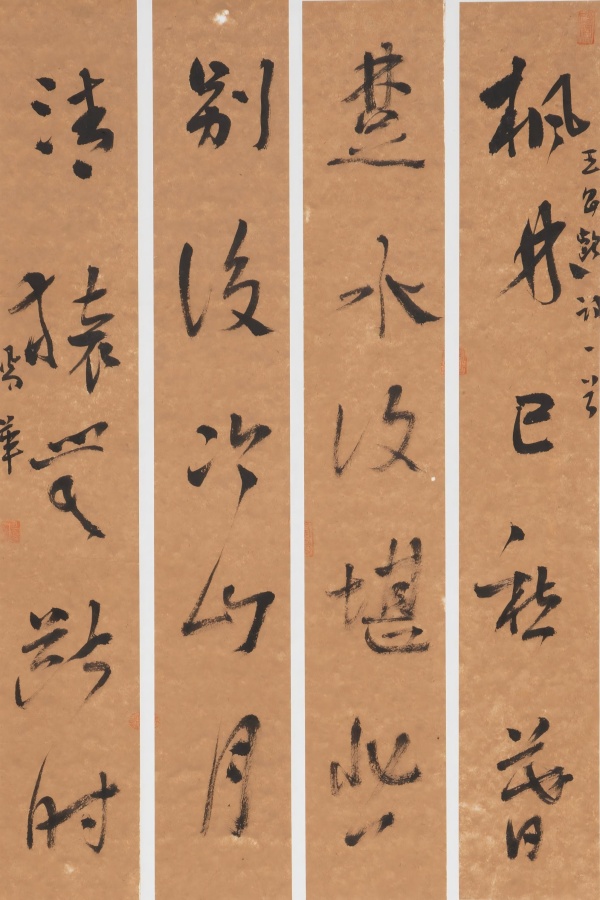 王昌齡詩一首
楓林已愁暮
楚水復堪悲
別後冷山月
清猿無斷时
華